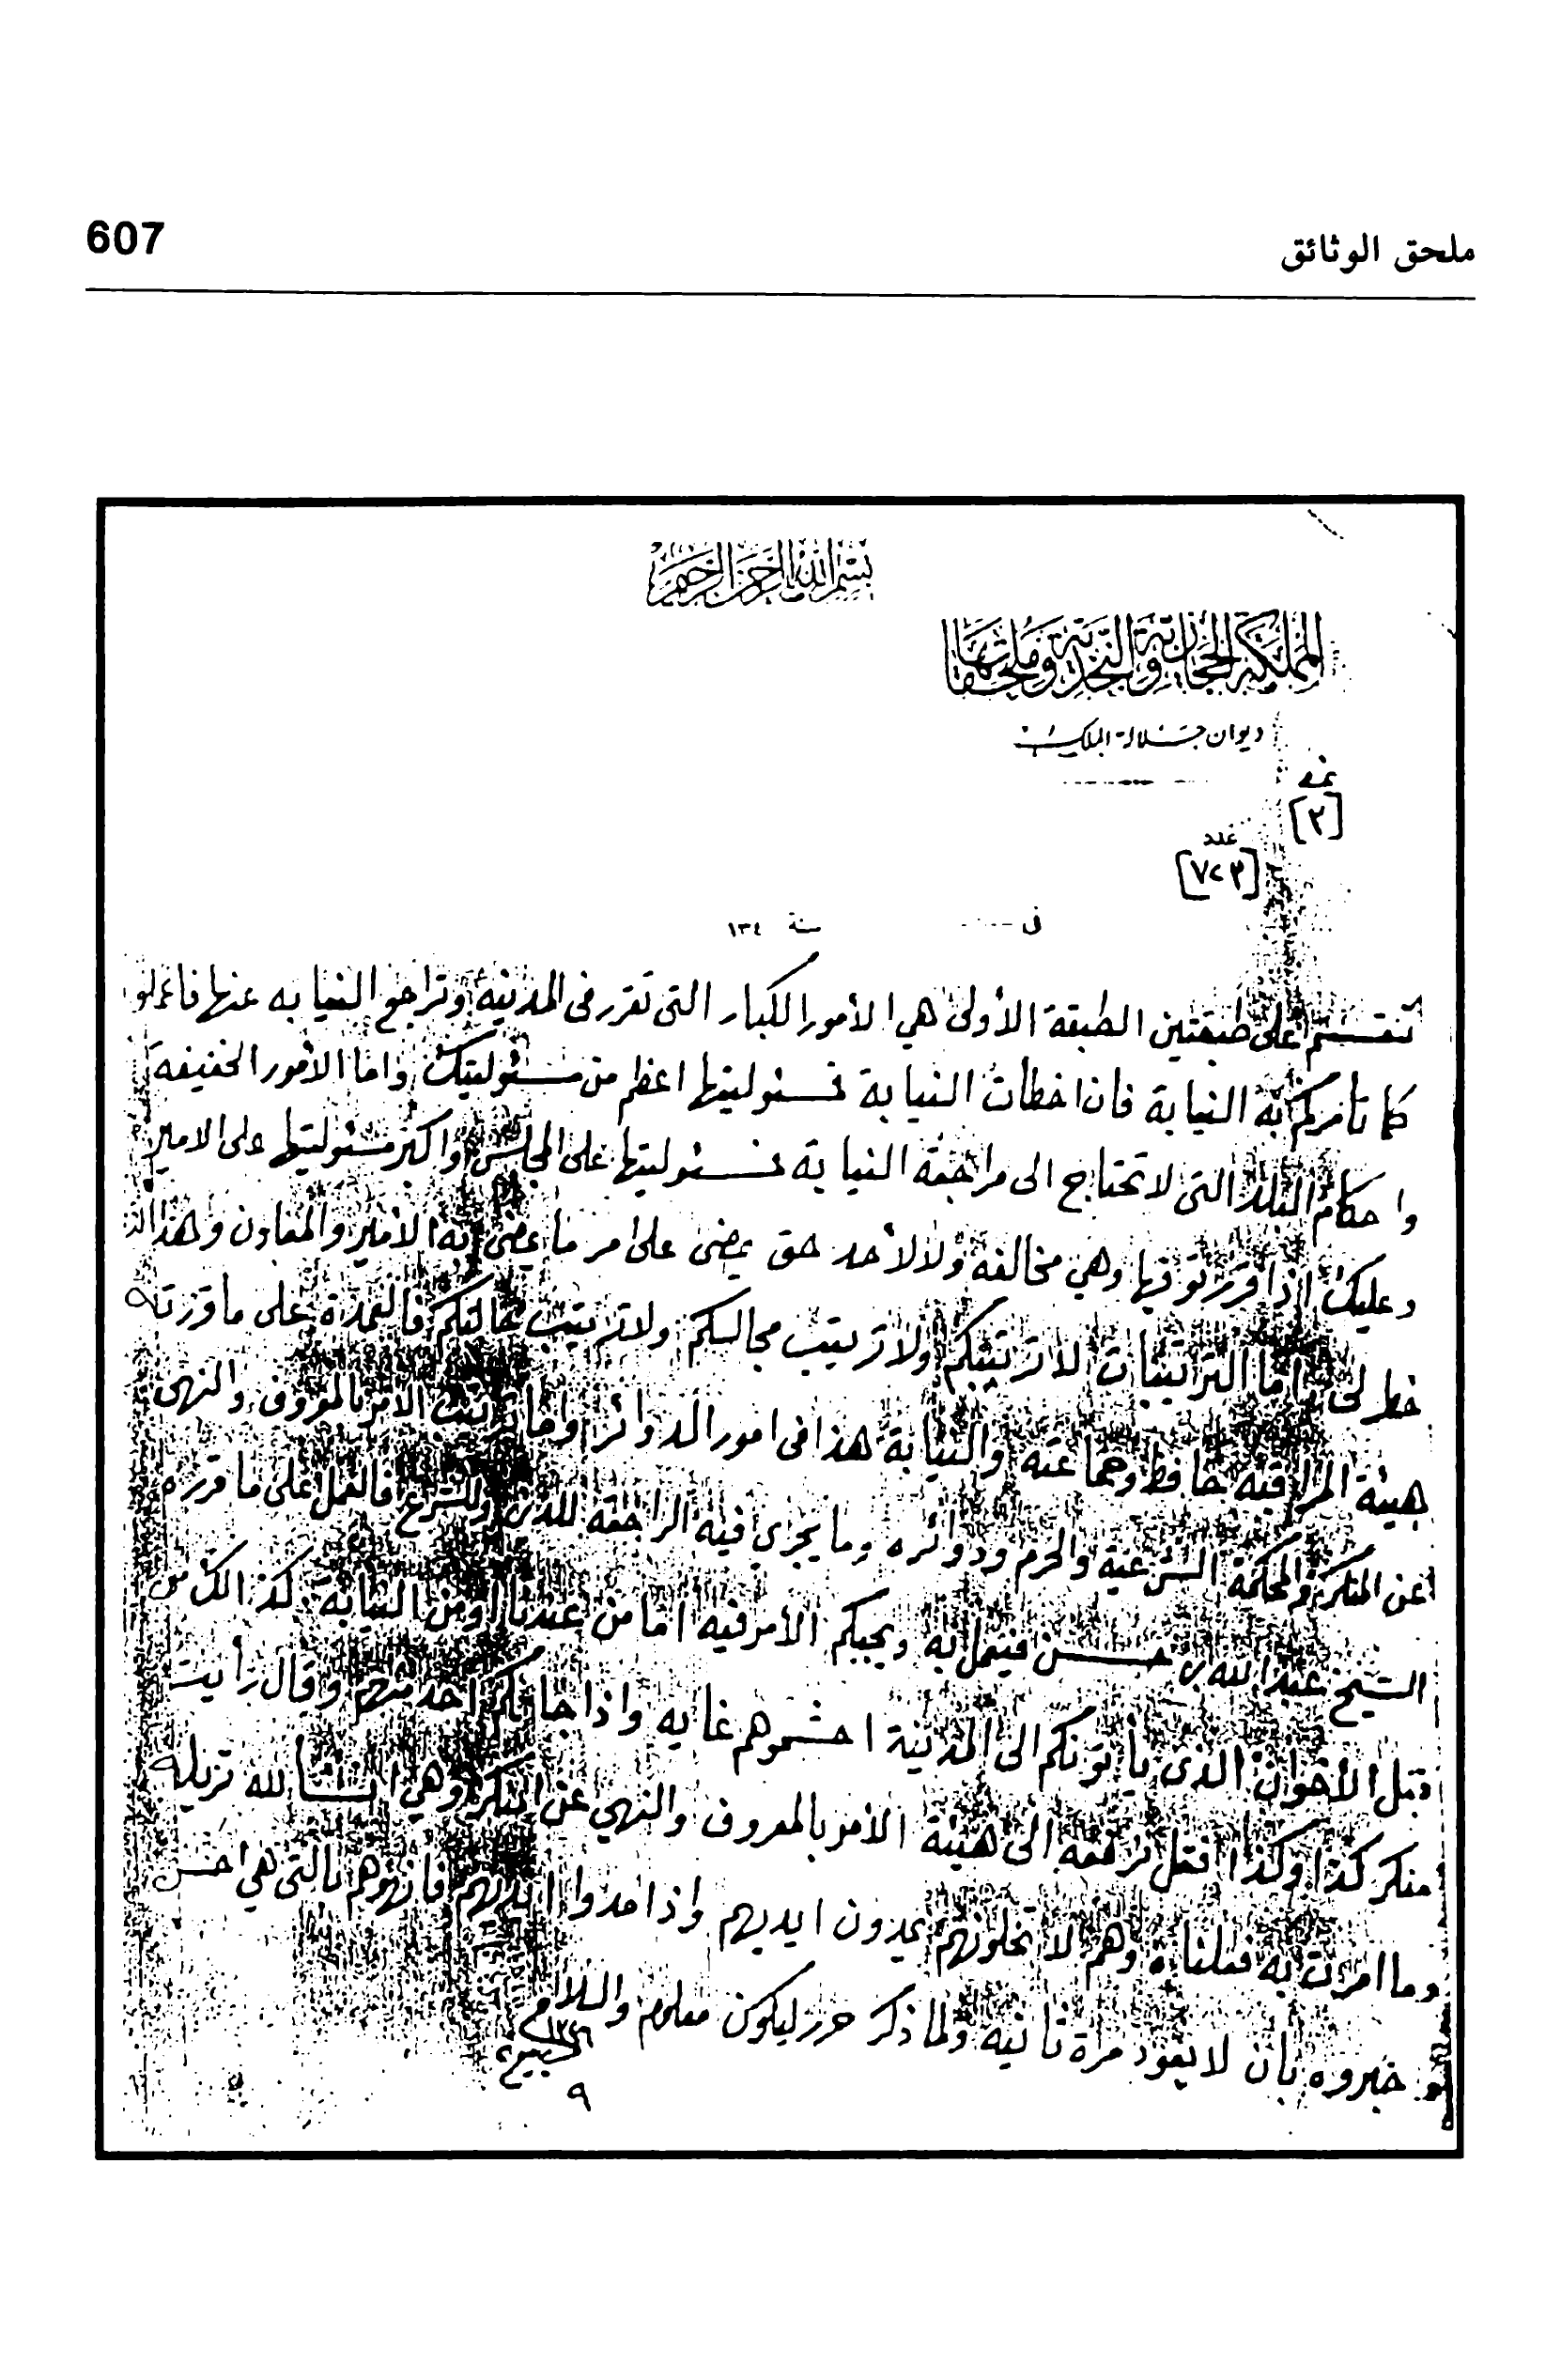 607
ملحق الوثائق
بسم الله الرحمن الرحيم
المملكة الحجازية والنجدية وملحقاتها
ديوان جلالة الملك
نمرة
[٣]
عدد
[٧٢٣]
في سنة ١٣٤
تنقسم على طبقتين الطبقة الأولى هي الأمور الكبار التى تقرر فى المدينة وتراجع النيابه عنها فاعملو
كما تأمركم به النيابة فان اخطأت النيابة فمسئوليتها اعظم من مسئوليتك واما الأمور الخفيفة
واحكام البلد التى لا تحتاج الى مراجعة النيابة فمسئوليتها على المجلس واكبر مسئوليتها على الامير
وعليك اذا قررتو فيها وهي مخالفة ولا لأحد حق يمضى على امر ما يمضى به الأمير والمعاون وهذا
خطر اما الترتيبات لا ترتيبكم ولا ترتيب مجالسكم ولا ترتيب فالعمدة على ما قررته
هيئة المراقبه حافظ وجماعته والنيابة هذا فى امور الدوائر واما ترتيب الأمر بالمعروف والنهى
عن المنكر والمحكمة الشرعية والحرم ودوائره وما يجرى فيه المراجعه للدين وللشرع فالعمل على ما قرره
الشيخ عبد الله بن حسن فيعمل به ويجيكم الأمر فيه اما من عندنا او من النيابة كذالك من
قبل الأخوان الذى يأتونكم الى المدينة احشموهم غايه واذا جائكم احد منهم وقال رأيت
منكر كذا وكذا فقل نرفعه الى هيئة الأمر بالمعروف والنهي عن المنكر وهي انشاالله تزيله
وما امرت به فعلناه وهم لا تخلونهم يمدون ايديهم واذا مدوا ايديهم فانهوهم بالتى هي احسن
خبروه بأن لا يعود مرة ثانيه ولما ذكر حرر ليكون معلوم والسلام
٩